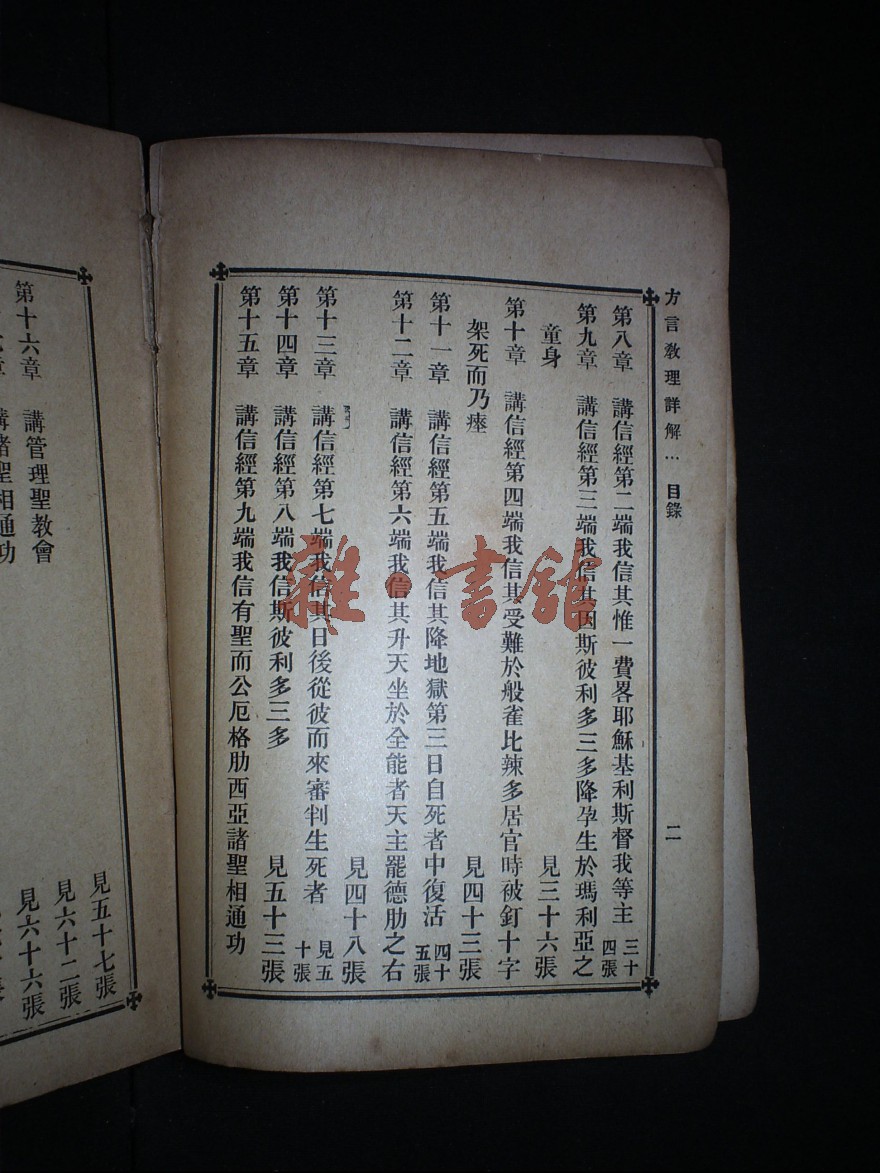 方言教理詳解… 目錄 二
第八章 講信經第二端我信其惟一費畧耶穌基利斯督我等主 三十四張
第九章 講信經第三端我信其因斯彼利多三多降孕生於瑪利亞之
童身 見三十六張
第十章 講信經第四端我信其受難於般雀比辣多居官時被釘十字
架死而乃瘞 見四十三張
第十一章 講信經第五端我信其降地獄第三日自死者中復活 四十五張
第十二章 講信經第六端我信其升天坐於全能者天主罷德肋之右
見四十八張
第十三章 講信經第七端我信其日後從彼而來審判生死者 見五十張
第十四章 講信經第八端我信斯彼利多三多 見五十三張
第十五章 講信經第九端我信有聖而公厄格肋西亞諸聖相通功
見五十七張
第十六章 講管理聖教會 見六十二張
講諸聖相通功 見六十六張
雜·書館